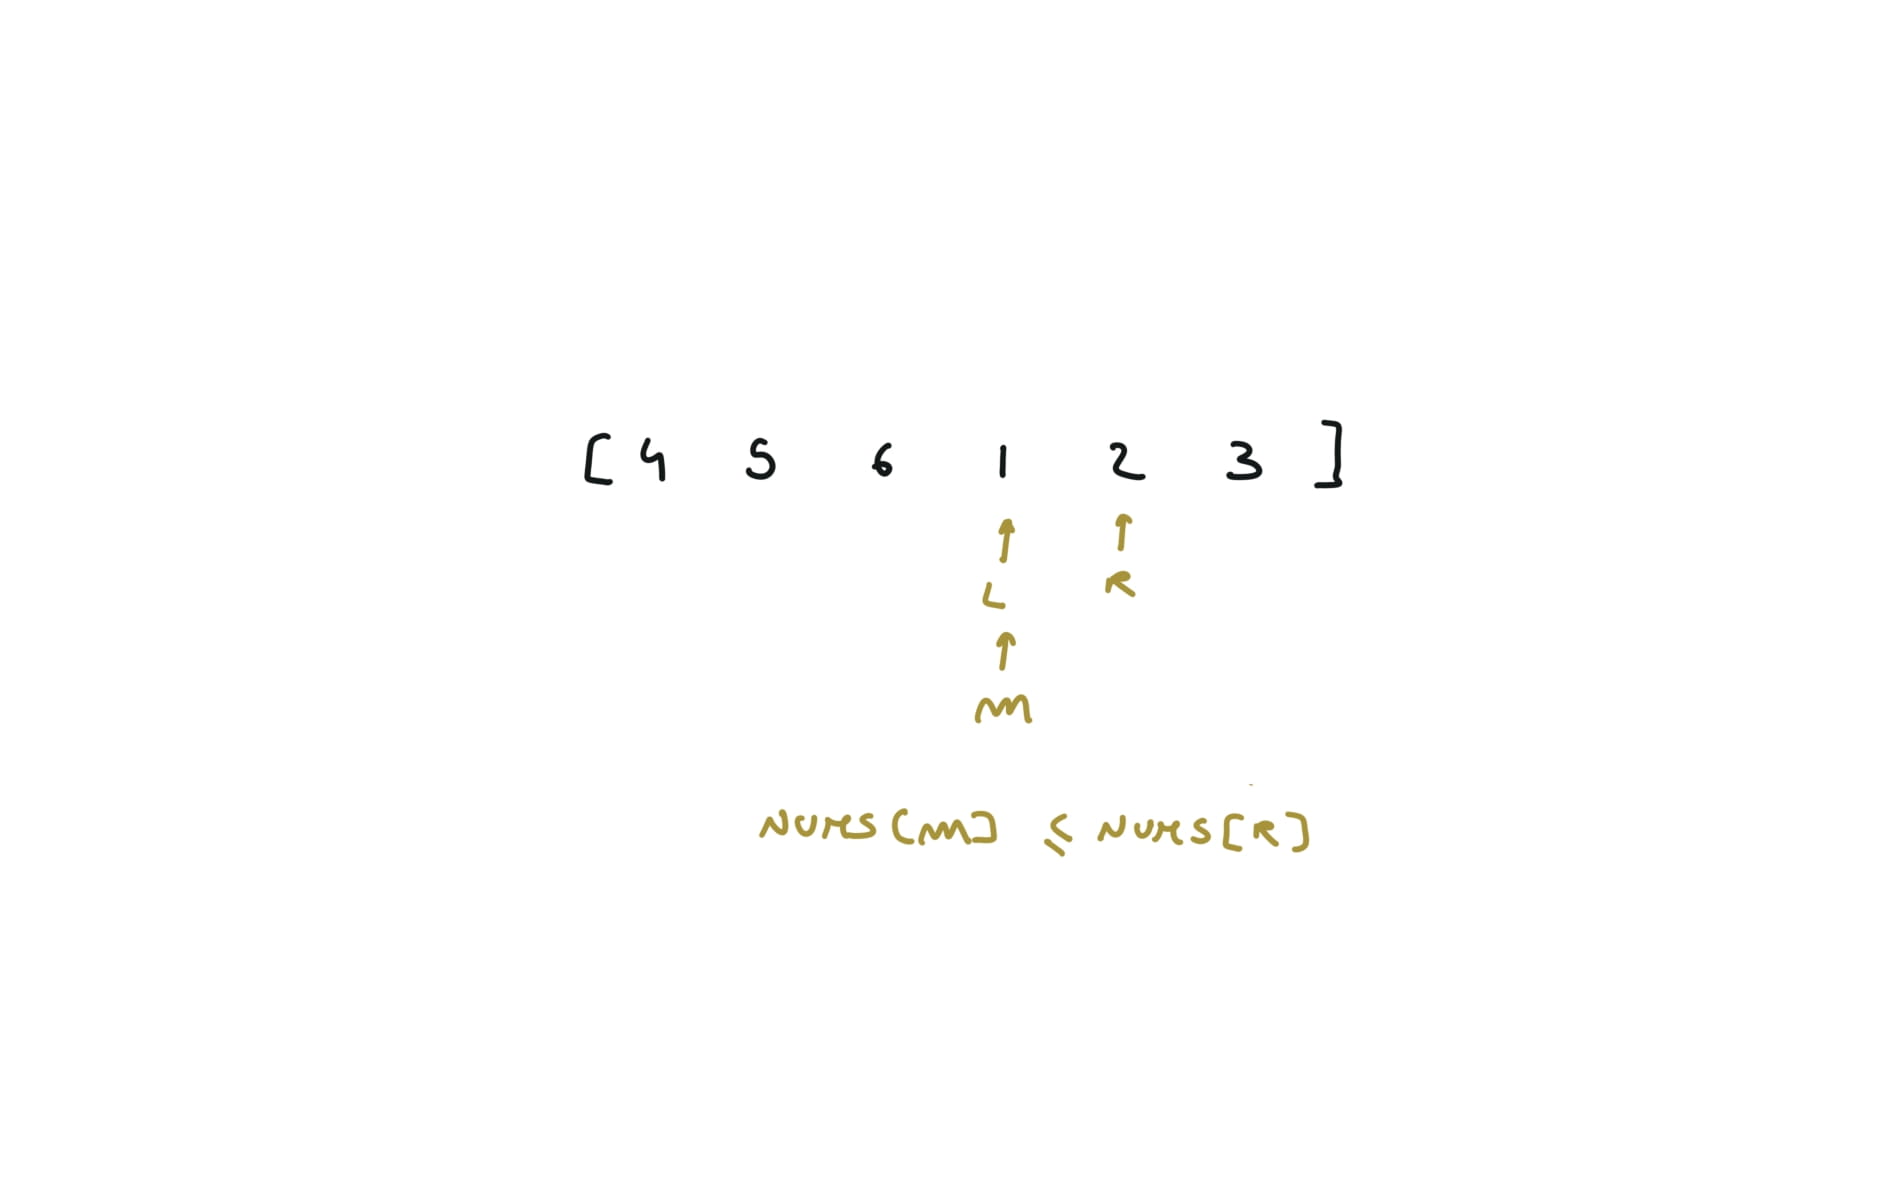 [ 4 5 6 1 2 3 ]
L R
M
NUMS[M] ≤ NUMS[R]